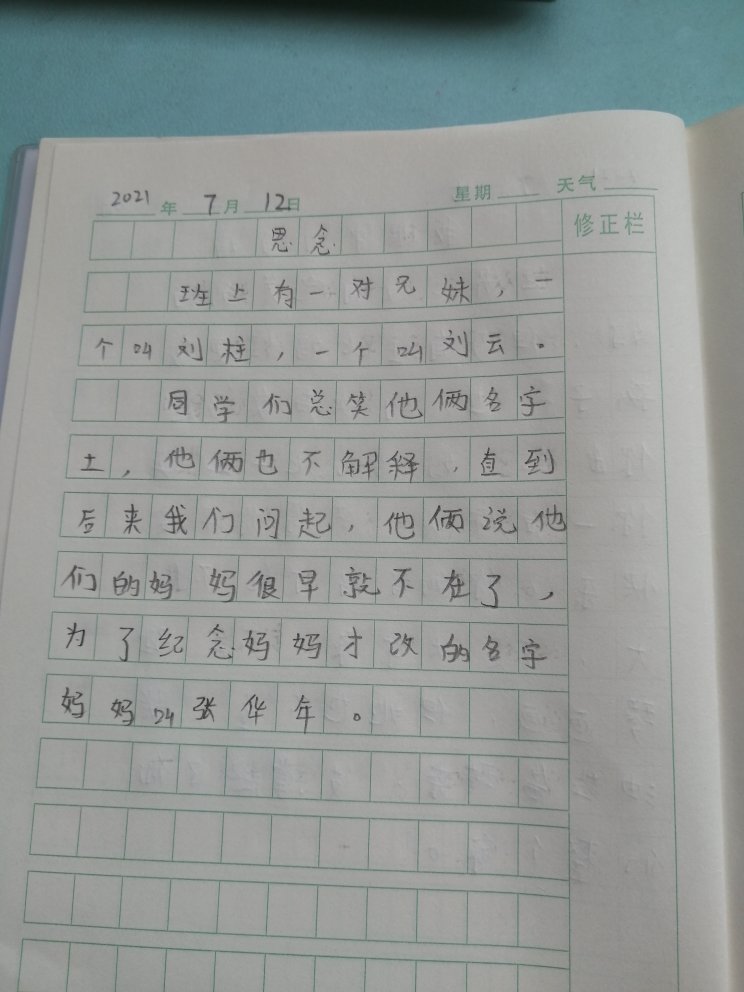 2021年7月12日 星期 天气
思念 修正栏
班上有一对兄妹，一
个叫刘柱，一个叫刘云。
同学们总笑他俩名字
土，他俩也不解释，直到
后来我们问起，他俩说他
们的妈妈很早就不在了，
为了纪念妈妈才改的名字
妈妈叫张华年。